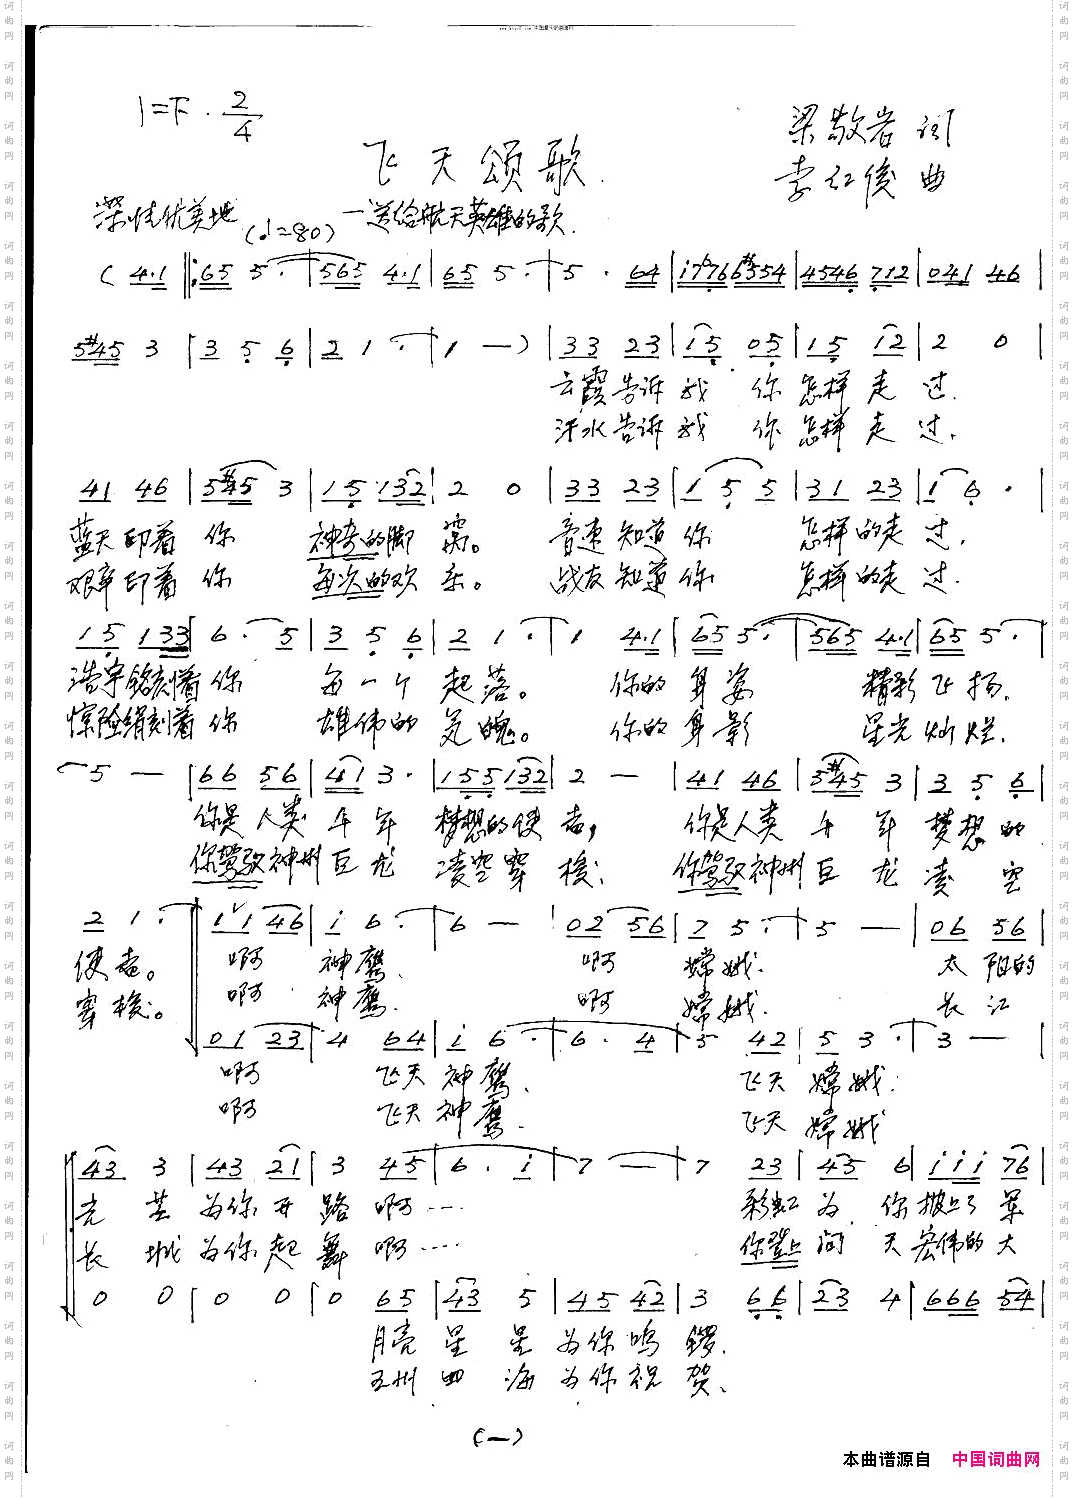 1=F · 2/4
飞天颂歌
梁敬岩 词
李红俊 曲
深情优美地 (♩=80)
—送给航天英雄的歌
( 4·1 ‖: 65 5· | 565 4·1 | 65 5· | 5 · 64 | i7766#554 | 4546 712 | 041 46 |
5#45 3 | 3 5 6 | 2 1 · | 1 — ) | 33 23 | 15 05 | 15 12 | 2 0 |
云霞告诉我 你怎样走过.
汗水告诉我 你怎样走过.
41 46 | 5#45 3 | 15 132 | 2 0 | 33 23 | 1 5 5 | 31 23 | 1 6 · |
蓝天印着你 神奇的脚窝。 音速知道你 怎样的走过.
艰辛印着你 每次的欢乐。 战友知道你 怎样的走过.
15 133 | 6 · 5 | 3 5 6 | 2 1 · | 1 4·1 | 65 5 · | 565 4·1 | 65 5 · |
浩宇铭刻着你 每一个起落。 你的身姿 精彩飞扬.
惊险镌刻着你 雄伟的气魄。 你的身影 星光灿烂.
5 — | 66 56 | 41 3 · | 155 132 | 2 — | 41 46 | 5#45 3 | 3 5 6 |
你是人类千年 梦想的使者, 你是人类千年梦想的
你驾驭神州巨龙 凌空穿梭; 你驾驭神州巨龙凌空
2 1 · | 11 46 | i 6 · | 6 — | 02 56 | 7 5 · | 5 — | 06 56 |
使者。 啊 神鹰. 啊 嫦娥. 太阳的
穿梭。 啊 神鹰. 啊 嫦娥. 长江
01 23 | 4 64 | i 6 · | 6 · 4 | 5 42 | 5 3 · | 3 — |
啊 飞天神鹰. 飞天嫦娥.
啊 飞天神鹰. 飞天嫦娥
43 3 | 43 21 | 3 45 | 6 · i | 7 — | 7 23 | 45 6 | i i i 76 |
光芒为你开路 啊…… 彩虹为你披上了星
长城为你起舞 啊…… 你登上问天宏伟的大
0 0 | 0 0 | 0 65 | 43 5 | 45 42 | 3 66 | 23 4 | 666 54 |
月亮星星为你鸣锣.
五州四海为你祝贺.
(一)
本曲谱源自 中国词曲网